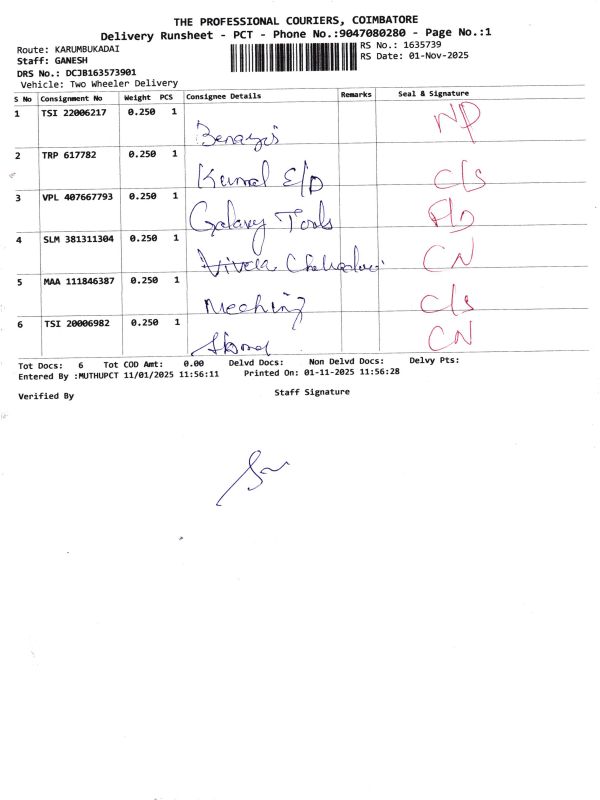 THE PROFESSIONAL COURIERS, COIMBATORE
Delivery Runsheet - PCT - Phone No.:9047080280 - Page No.:1
Route: KARUMBUKADAI RS No.: 1635739
Staff: GANESH RS Date: 01-Nov-2025
DRS No.: DCJB163573901
Vehicle: Two Wheeler Delivery
S No Consignment No Weight PCS Consignee Details Remarks Seal & Signature
1 TSI 22006217 0.250 1 NP
2 TRP 617782 0.250 1 Kumal E/D C/S
3 VPL 407667793 0.250 1 Galaxy Tools
4 SLM 381311304 0.250 1 CN
5 MAA 111846387 0.250 1 C/S
6 TSI 20006982 0.250 1 CN
Tot Docs: 6 Tot COD Amt: 0.00 Delvd Docs: Non Delvd Docs: Delvy Pts:
Entered By :MUTHUPCT 11/01/2025 11:56:11 Printed On: 01-11-2025 11:56:28
Verified By Staff Signature